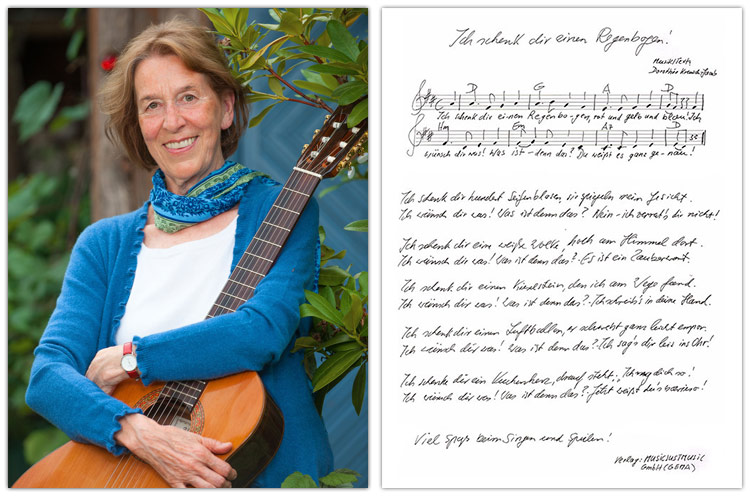 Ich schenk dir einen Regenbogen!
Musik/Text:
Dorothée Kreusch-Jacob
D G A D
Ich schenk dir einen Regenbo-gen, rot und gelb und blau! Ich
Hm Em A7 D
wünsch dir was! Was ist denn das? Du weißt es ganz ge-nau!
Ich schenk dir hundert Seifenblasen, sie spiegeln mein Gesicht.
Ich wünsch dir was! Was ist denn das? Nein - ich verrat's dir nicht!
Ich schenk dir eine weiße Wolke, hoch am Himmel dort.
Ich wünsch dir was! Was ist denn das? Es ist ein Zauberwort.
Ich schenk dir einen Kieselstein, den ich am Wege fand.
Ich wünsch dir was! Was ist denn das? Ich schreib's in deine Hand.
Ich schenk dir einen Luftballon, er schwebt ganz leicht empor.
Ich wünsch dir was! Was ist denn das? Ich sag's dir leis ins Ohr!
Ich schenke dir ein Kuchenherz, darauf steht: "Ich mag dich so!
Ich wünsch dir was! Was ist denn das? Jetzt weißt du's sowieso!
Viel Spaß beim Singen und Spielen!
Verlag: MUSICJUSTMUSIC
GmbH (GEMA)